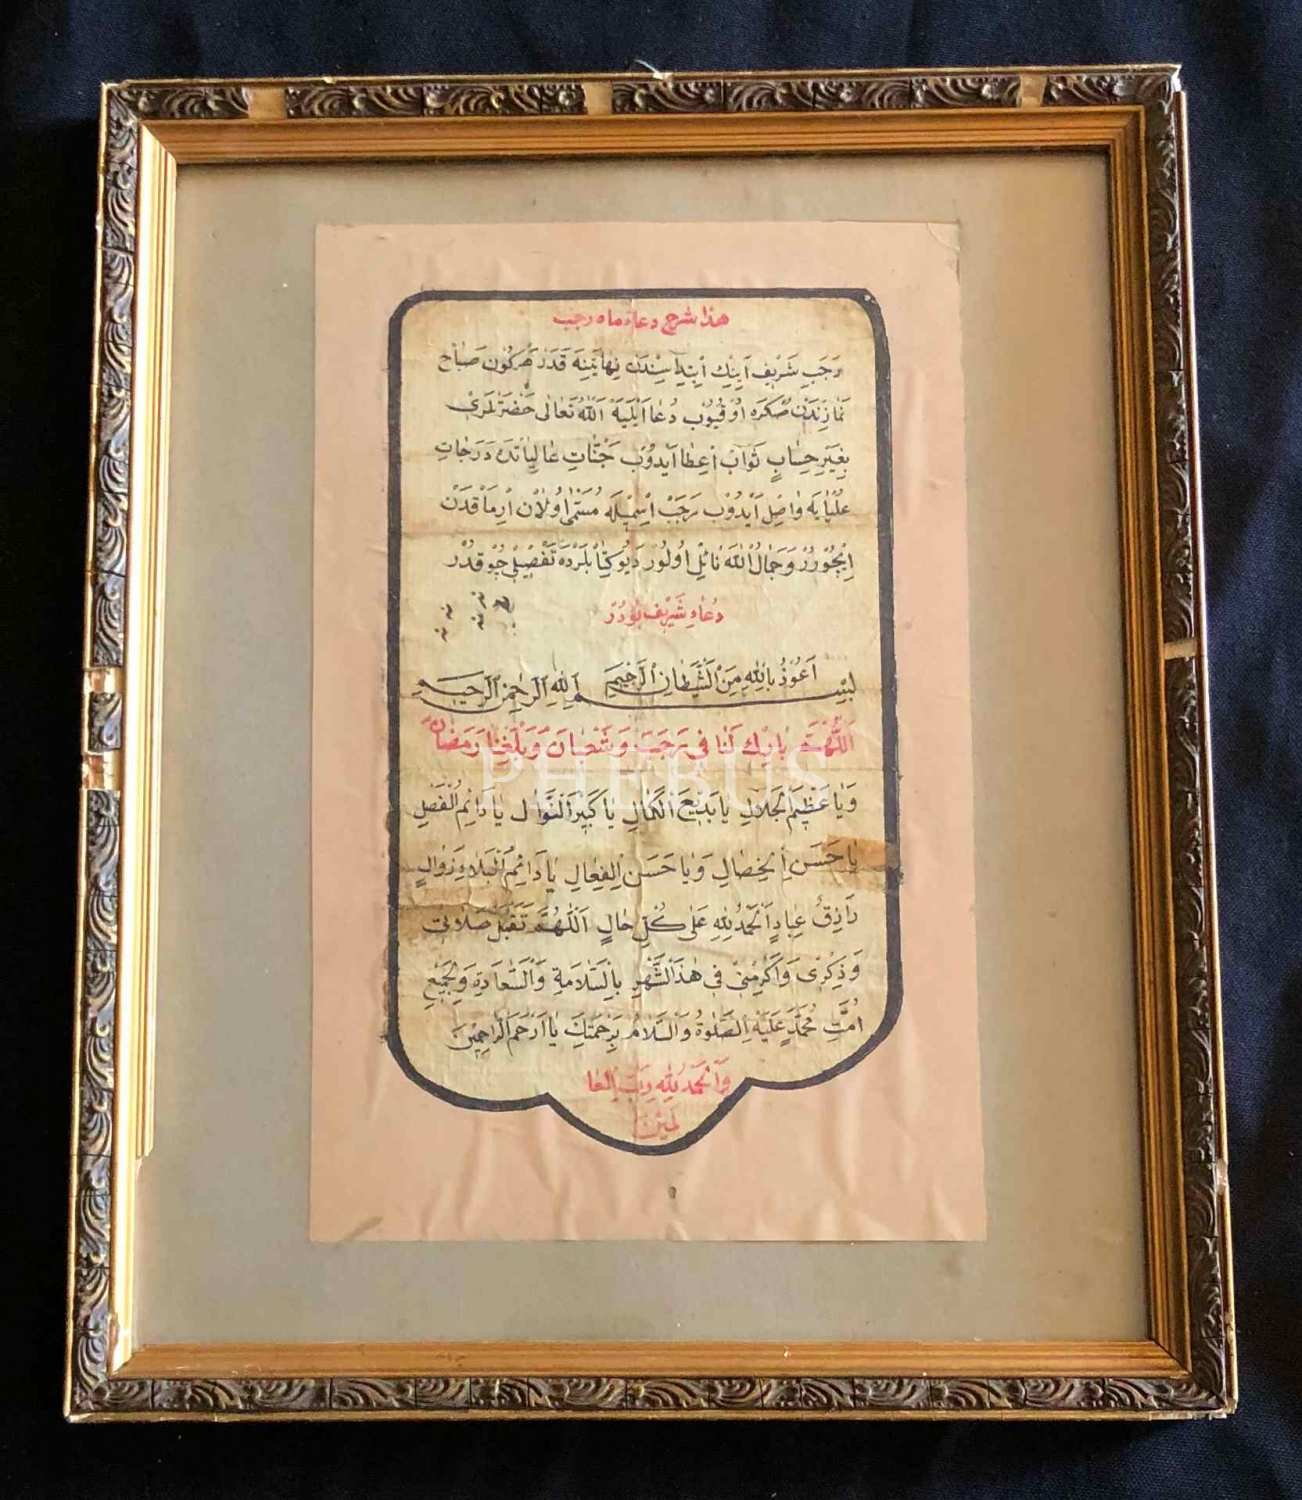 هذا شرح دعاء ماه رجب
رَجَبِ شَرِيف آيِنِك اِبْتِدَاسِنْدَن نِهَايَتِنَه قَدَرْ هَرْكُون صَبَاح
نَمَازِنْدَنْ صُكْرَه اُوقُيُوبْ دُعَا اَيْلَيَه اَللّٰهُ تَعَالٰى حَضْرَتْلَرِى
بِغَيْرِ حِسَابٍ ثَوَابْ اِعْطَا اَيْدُوبْ جَنَّاتِ عَالِيَاتْدَه دَرَجَاتِ
عُلْيَايَه وَاصِلْ اَيْدُوبْ رَجَبْ اِسْمِيلَه مُسَمّٰى اُولَانْ اِرْمَاقْدَنْ
اِيچُورُرْ وَجَمَالُ اللّٰه نَائِلْ اُولُورْ دَيُو كِتَابْلَرْدَه تَفْصِيلِى چُوقْدُرْ
دُعَاءِ شَرِيف بُودُرْ
اَعُوذُ بِاللّٰهِ مِنَ الشَّيْطَانِ الرَّجِيمِ
بِسْمِ اللّٰهِ الرَّحْمٰنِ الرَّحِيمِ
اَللّٰهُمَّ بَارِكْ لَنَا فِى رَجَبَ وَشَعْبَانَ وَبَلِّغْنَا رَمَضَانَ
وَيَا عَظِيمَ الْجَلَالِ يَا بَدِيعَ الْكَمَالِ يَا كَبِيرَ النَّوَالِ يَا دَائِمَ الْفَضْلِ
يَا حَسَنَ الْخِصَالِ وَيَا حَسَنَ الْفِعَالِ يَا دَائِمَ الْبَلَا وَزَوَالٍ
رَازِقُ عِبَادٍ اَلْحَمْدُ لِلّٰهِ عَلٰى كُلِّ حَالٍ اَللّٰهُمَّ تَقَبَّلْ صَلَاتِى
وَذِكْرِى وَاَكْرِمْنِى فِى هٰذَا الشَّهْرِ بِالسَّلَامَةِ وَالسَّعَادَةِ وَلِجَمِيعِ
اُمَّتِ مُحَمَّدٍ عَلَيْهِ الصَّلٰوةُ وَالسَّلَامُ بِرَحْمَتِكَ يَا اَرْحَمَ الرَّاحِمِينَ
وَالْحَمْدُ لِلّٰهِ رَبِّ الْعَا
لَمِينَ
PHEBUS